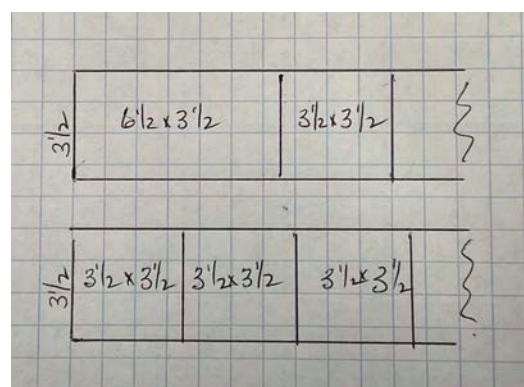 3 1/2
6 1/2 x 3 1/2
3 1/2 x 3 1/2
3 1/2
3 1/2 x 3 1/2
3 1/2 x 3 1/2
3 1/2 x 3 1/2